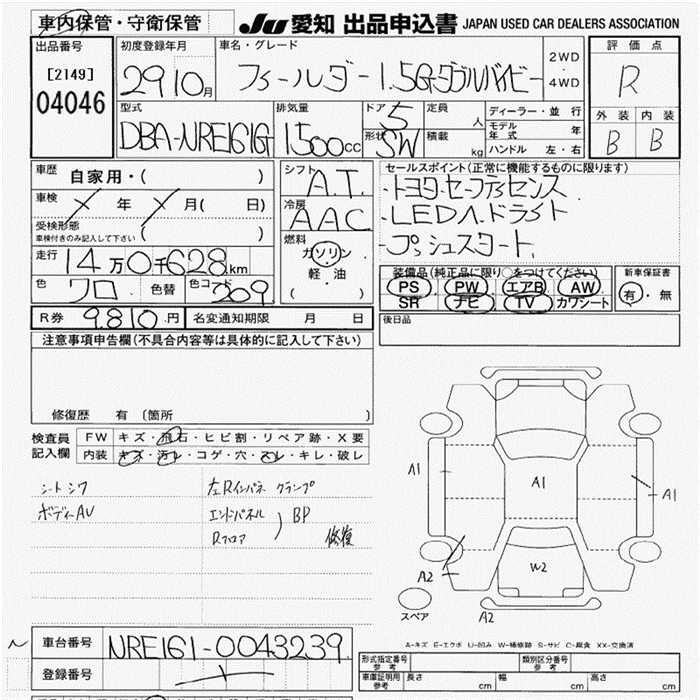 車内保管・守衛保管
JU 愛知 出品申込書 JAPAN USED CAR DEALERS ASSOCIATION
出品番号
[2149]
04046
初度登録年月
29 10月
車名・グレード
フィールダー1.5Gダブルバイビー
2WD
・
4WD
評価点
R
外装 内装
B B
型式
DBA-NRE161G
排気量
1500cc
ドア 5
形状 SW
定員 人
積載 kg
ディーラー・並行
モデル年式 年
ハンドル 左・右
車歴 自家用・( )
車検 年 月( 日)
受検形態
車検付きのみ記入して下さい ( )
走行 14万0千628km
色 クロ 色替 色コード 209
シフト A.T.
冷房 AAC
燃料
ガソリン
・
軽・油
( )
セールスポイント(正常に機能するものに限ります)
・トヨタセーフティセンス
・LEDヘッドライト
・プッシュスタート
装備品(純正品に限り○をつけてください)
PS PW エアB AW
SR ナビ TV カワシート
新車保証書
有・無
R券 9.810円 名変通知期限 月 日
後日品
注意事項申告欄(不具合内容等は具体的に記入して下さい)
修復歴 有 〔箇所
検査員記入欄
FW キズ・飛石・ヒビ割・リペア跡・X要
内装 キズ・汚レ・コゲ・穴・スレ・キレ・破レ
シートシワ
ボディーAU
左Rインパネ クランプ
エンドパネル
Rフロア
BP
修復
A1
A1
A1
A2
W2
A2
スペア
A-キズ E-エクボ U-凹み W-補修跡 S-サビ C-腐食 XX-交換済
車台番号 NRE161-0043239
登録番号
形式指定番号 参考
類別区分番号 参考
車庫証明用 参考 長さ cm 幅 cm 高さ cm